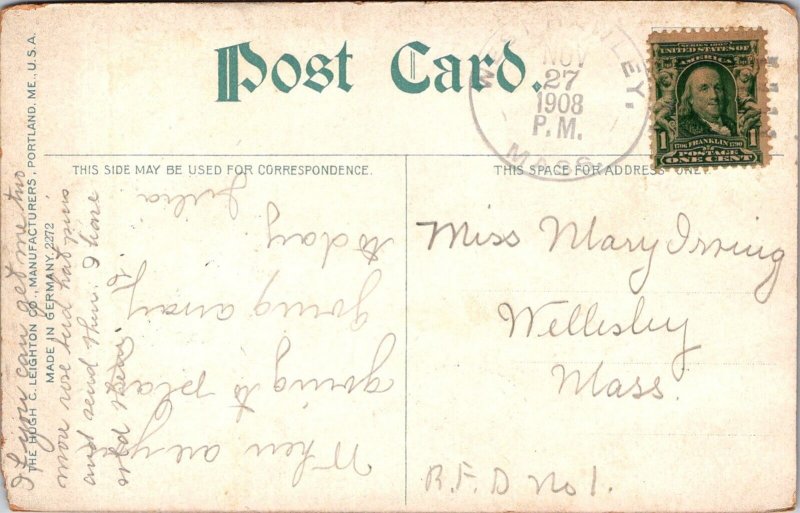 Post Card.
THIS SIDE MAY BE USED FOR CORRESPONDENCE.
THIS SPACE FOR ADDRESS ONLY
NOV
27
1908
P.M.
MASS.
SERIES 1902
UNITED STATES OF
AMERICA
1
1706 FRANKLIN 1790
POSTAGE
ONE CENT
Miss Mary Irving
Wellesley
Mass.
R.F.D No 1.
When are you
going to
going away
to day.
Julia
If you can get me two
more rose bud hat pins
and send them. I have
sold them
THE HUGH C. LEIGHTON CO., MANUFACTURERS, PORTLAND, ME., U.S.A.
MADE IN GERMANY. 2272